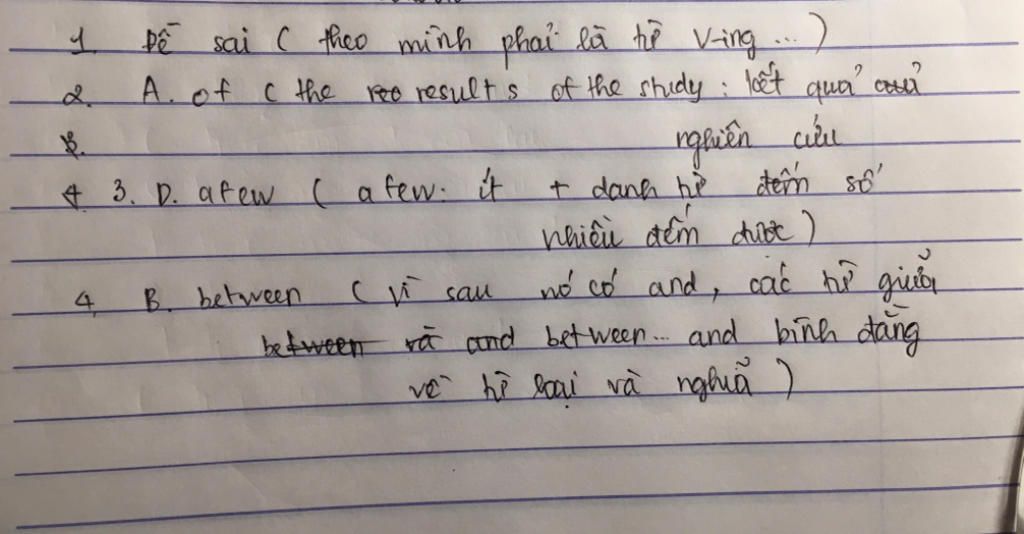 1 Đề sai ( theo mình phải là từ V-ing ... )
2. A. of ( the results of the study : kết quả của
nghiên cứu
3. D. a few ( a few: ít + danh từ đếm số
nhiều đếm được )
4 B. between ( vì sau nó có and, các từ giữa
between và and between... and bình đẳng
về từ loại và nghĩa )